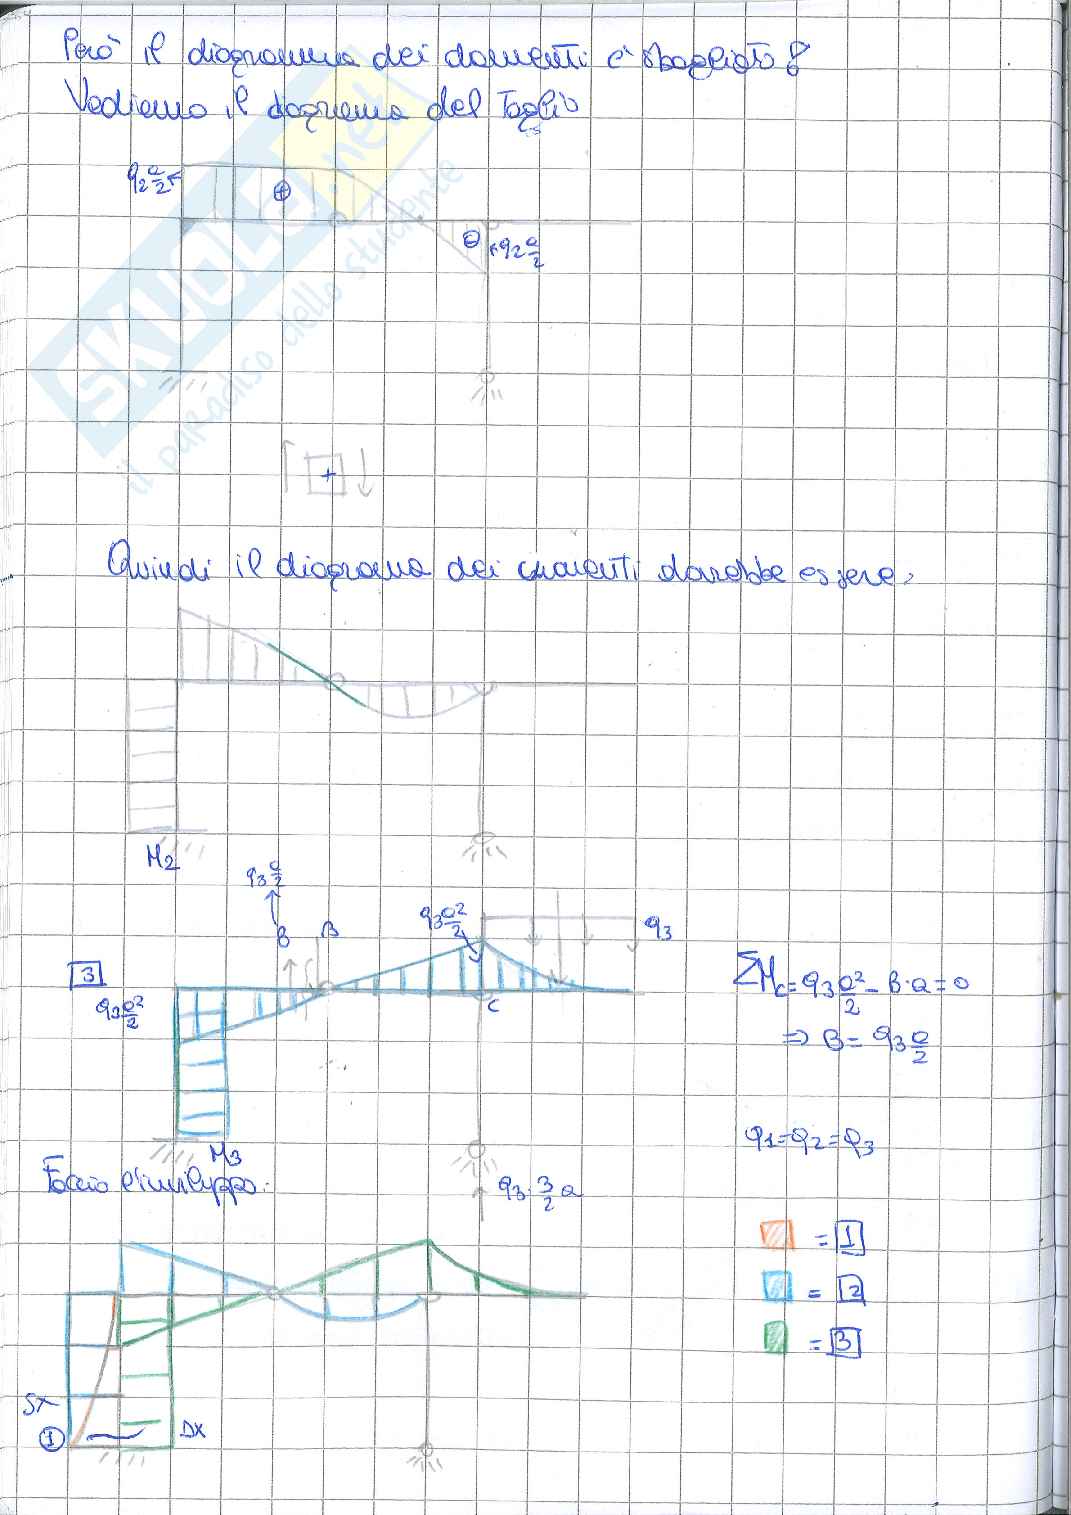 Però il diagramma dei momenti è sbagliato!
Vediamo il diagramma del Taglio
q2 a/2
+
-
q2 a/2
SKUOLA.net
il paradiso dello studente
+
Quindi il diagramma dei momenti dovrebbe essere:
M2
q3 a/2
B
B
q3 a²/2
q3
3
q3 a²/2
C
ΣMc = q3 a²/2 - B·a = 0
=> B = q3 a/2
M3
q1 = q2 = q3
Faccio l'inviluppo:
q3 · 3/2 a
= 1
= 2
= 3
SX
1
DX